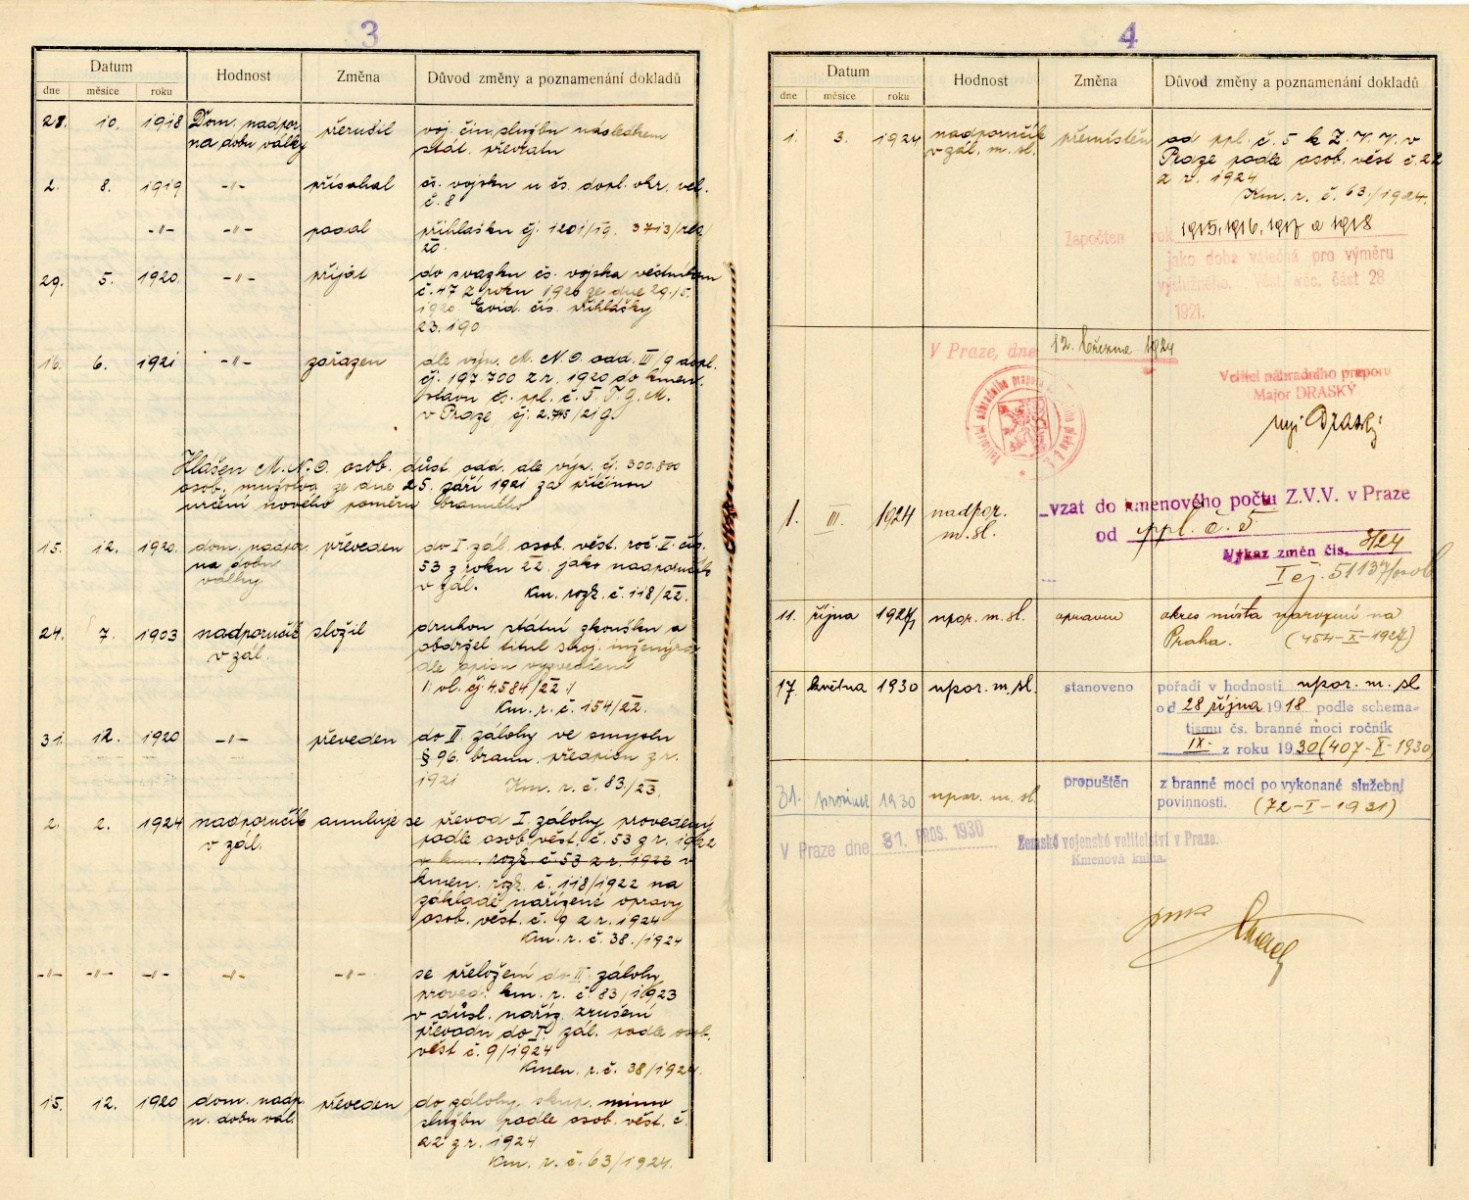 3
Datum
Hodnost
Změna
Důvod změny a poznamenání dokladů
dne
měsíce
roku
28. 10. 1918 Dom. nadpor. přerušil voj. čin. službu následkem
na dobu války stát. převratu
2. 8. 1919 -"- přísahal čs. vojsku u čs. dopl. okr. vel.
č. 8
-"- -"- podal přihlášku čj. 1201/19. 3713/
20.
29. 5. 1920. -"- přijat do svazku čs. vojska věstníkem
č. 47 z roku 1920 ze dne 29./5.
1920 Evid. čís. přihlášky
23.190
16. 6. 1921 -"- zařazen dle výn. M.N.O. odd. III/9 dopl.
čj. 197.700 z r. 1920 do kmen.
stavu čs. ppl. č. 5 T.G.M.
v Praze, čj. 2.745/21 g.
Hlášen M.N.O. osob. důst. odd. dle výn. čj. 300.800
osob. mužstva ze dne 25. září 1921 za příčinou
určení nového poměru branného
15. 12. 1920. dom. nadpor. převeden do I. zál. osob. věst. roč. V. čís.
na dobu 53 z roku 22. jako nadporučík
války v zál. Km. rozk. č. 118/22.
24. 7. 1903 nadporučík složil druhou státní zkoušku a
v zál. obdržel titul stroj. inženýra
dle opisu vysvědčení
/: vl. čj. 4584/22 :/
Km. r. č. 154/22.
31. 12. 1920 -"- převeden do II. zálohy ve smyslu
§ 96. brann. předpisu z r.
1921 Km. r. č. 83./23.
2. 2. 1924 nadporučík anuluje se převod I. zálohy provedený
v zál. podle osob. věst. č. 53 z r. 1922
v km. rozk. č. 53 z r. 1922 v
kmen. rozk. č. 118/1922 na
základě nařízené opravy
osob. věst. č. 9 z r. 1924
Km. r. č. 38./1924
-"- -"- -"- -"- -"- se přeložení do II. zálohy
proved. km. r. č. 83/1923
v důsl. naříz. zrušení
převodu do I. zál. podle osob.
věst č. 9/1924
Kmen. r. č. 38/1924.
15. 12. 1920 dom. nadp. převeden do zálohy skup. mimo
n. dobu vál. službu podle osob. věst. č.
22 z r. 1924
Km. r. č. 63/1924.
4
Datum
Hodnost
Změna
Důvod změny a poznamenání dokladů
dne
měsíce
roku
1. 3. 1924 nadporučík přemístěn od ppl. č. 5 k Z.V.V. v
v zál. m. sl. Praze podle osob. věst č. 22
z r. 1924
Km. r. č. 63./1924.
Započten rok 1915, 1916, 1917 a 1918
jako doba válečná pro výměru
výslužného. Věst. věc. část 28
1921.
V Praze, dne 12. března 1924
Velitel náhradního praporu
Major DRASKÝ
mjr Draský
1. III. 1924 nadpor.
m. sl.
vzat do kmenového počtu Z.V.V. v Praze
od ppl. č. 5
Výkaz změn čís. 3/24
I čj. 51137/osob
11. října 1927 npor. m. sl. opraven okres místa narození na
Praha. (454-X-1927)
17. května 1930 npor. m. sl. stanoveno pořadí v hodnosti npor. m. sl.
od 28 října 1918 podle schema-
tismu čs. branné moci ročník
IX. z roku 1930 (407-V-1930)
31. prosince 1930 npor. m. sl. propuštěn z branné moci po vykonané služební
povinnosti. (72-I-1931)
V Praze dne 31. PROS. 1930
Zemské vojenské velitelství v Praze.
Kmenová kniha.